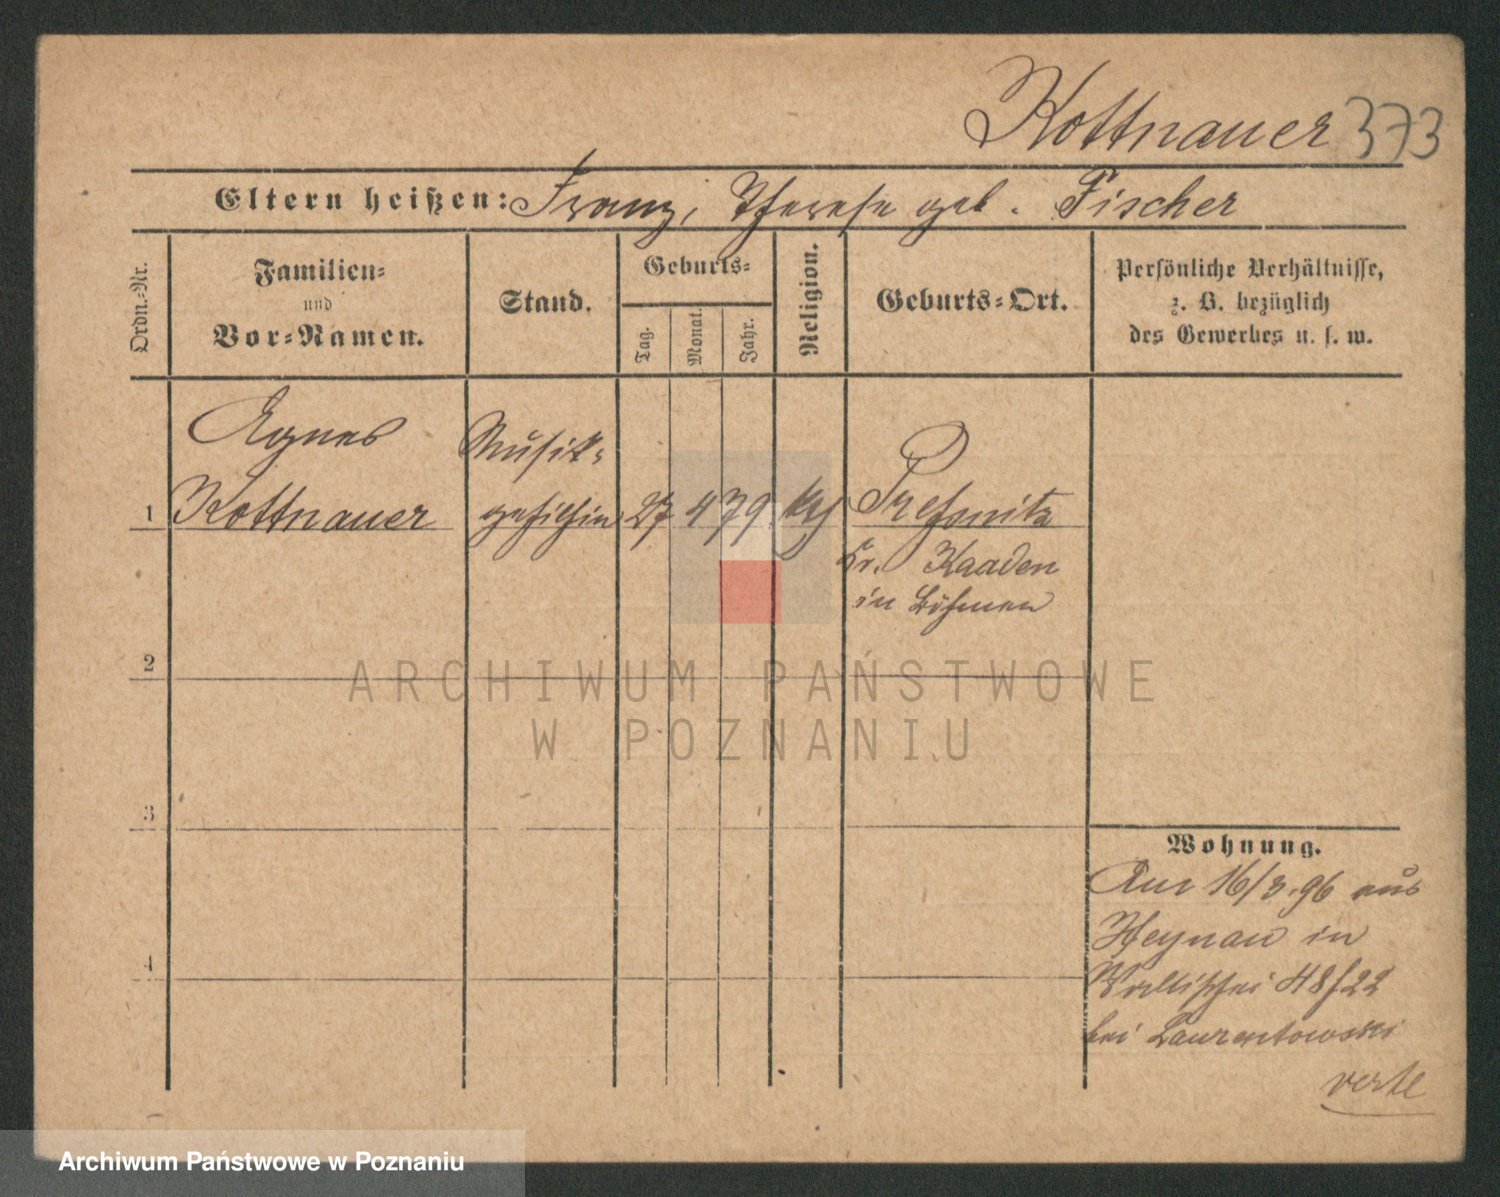 Kottnauer 373
Eltern heißen: Franz, Therese geb. Fischer
Ordn.-Nr.
Familien-
und
Vor-Namen.
Stand.
Geburts-
Tag.
Monat.
Jahr.
Religion.
Geburts-Ort.
Persönliche Verhältnisse,
z. B. bezüglich
des Gewerbes u. s. w.
Agnes
Musik-
1 Kottnauer gehilfin 27 4 79 kth Pressnitz
Kr. Kaaden
in Böhmen
2
3
4
Wohnung.
Am 16/3.96 aus
Heynau in
Wallischei 48f22
bei Laurentowski
verte
ARCHIWUM PAŃSTWOWE
W POZNANIU
Archiwum Państwowe w Poznaniu